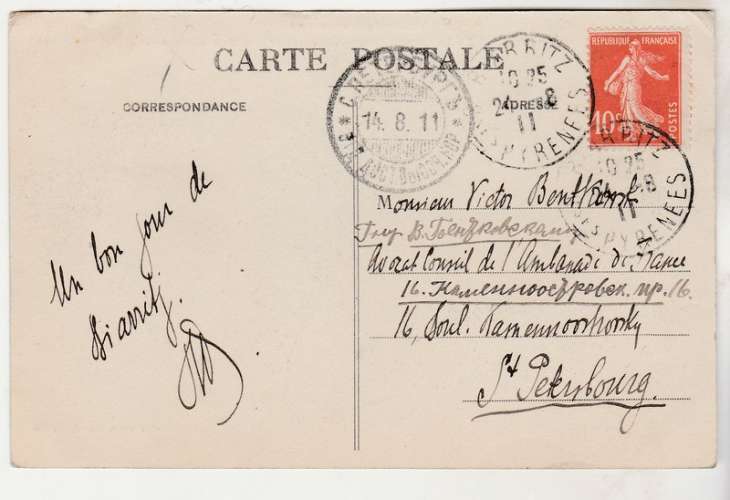 CARTE POSTALE
CORRESPONDANCE
ADRESSE
RÉPUBLIQUE FRANÇAISE
10c
POSTES
BIARRITZ
10 25
24 - 8
11
Bses PYRENEES
BIARRITZ
10 25
24 - 8
11
Bses PYRENEES
С. ПЕТЕРБУРГЪ
14. 8. 11
Un bon jour de
Biarritz.
Monsieur Victor Bentkowski
В. Бентковскому
Avocat Conseil de l'Ambassade de France
16. Каменноостровск. пр. 16.
16, Boul. Kamennoostrovsky
St Petersbourg.